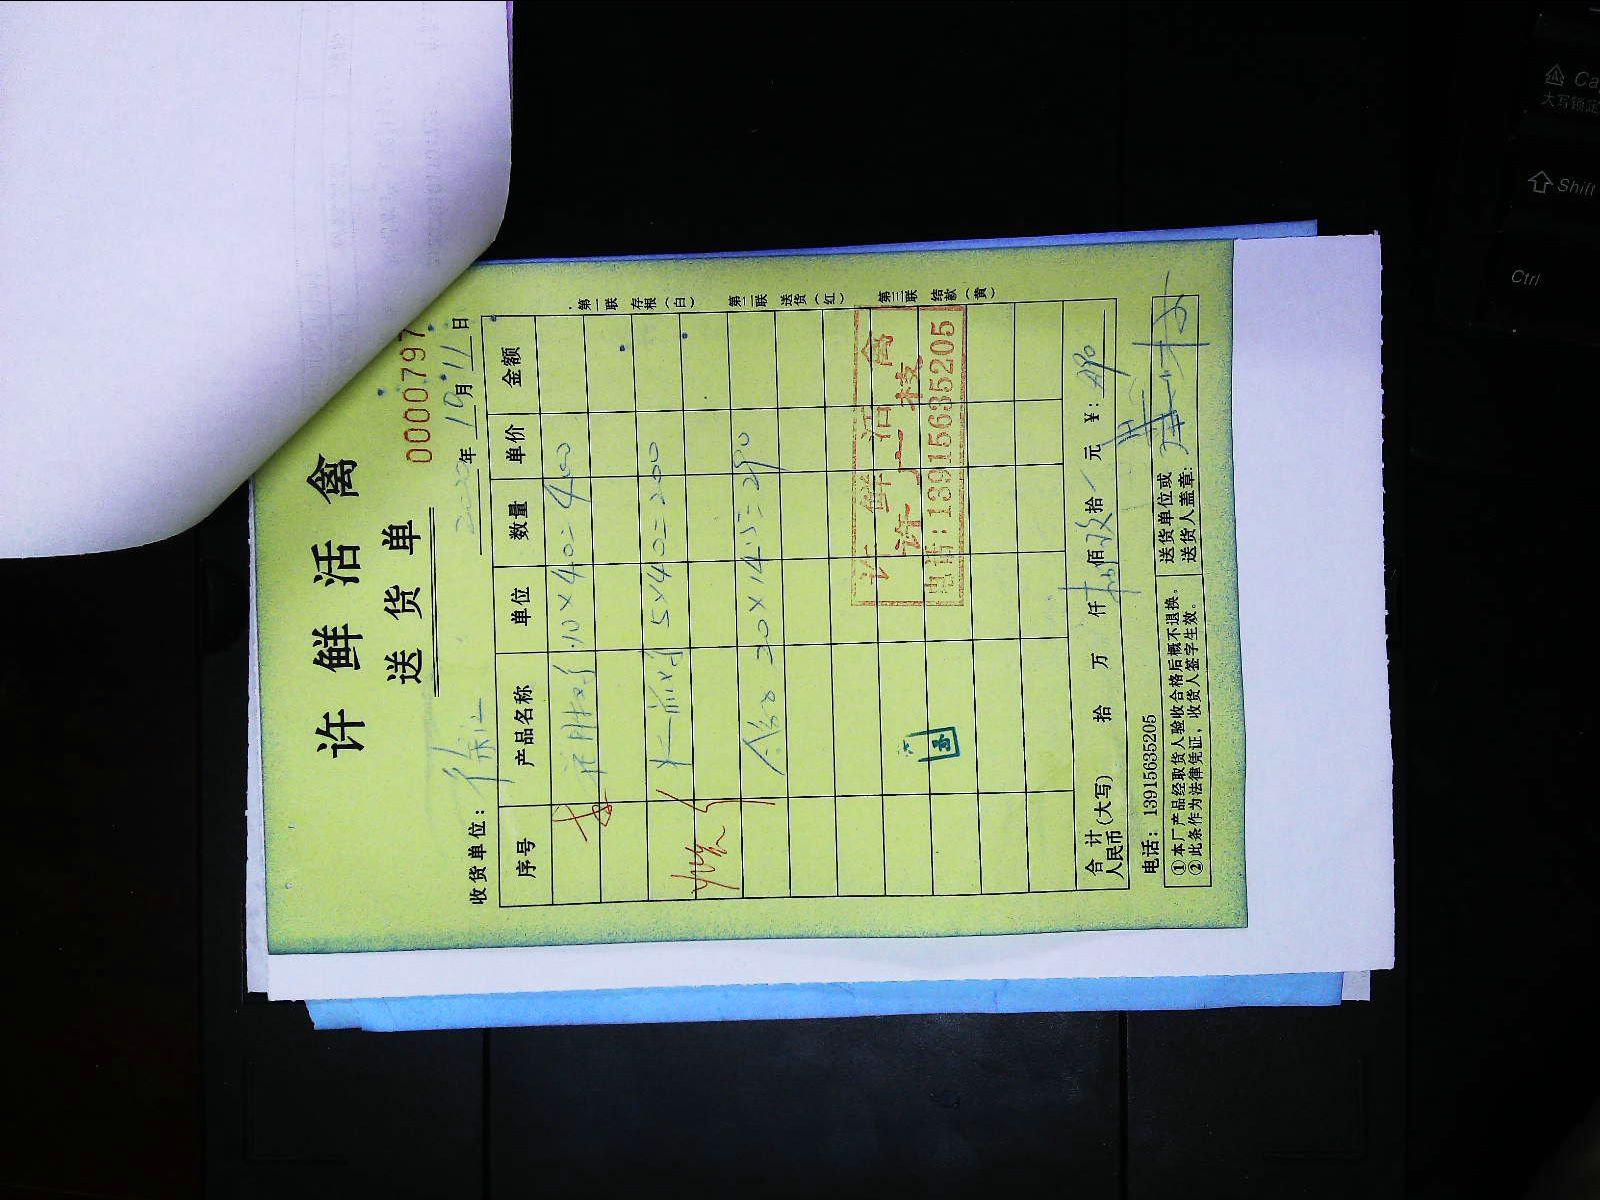 许鲜活禽
送货单
0000797
收货单位：徐
2020年10月11日
序号 产品名称 单位 数量 单价 金额
10×40=400
5×40=200
20×14.5=290
第一联 存根（白）
第二联 送货（红）
第三联 结款（黄）
许鲜活禽
电话:13915635205
合计人民币（大写） 拾 万 仟 捌佰玖拾 元 ¥: 890
电话：13915635205
①本厂产品经取货人验收合格后概不退换。
②此条作为法律凭证，收货人签字生效。
送货单位或
送货人盖章:
Ca
大写锁定
Shift
Ctrl